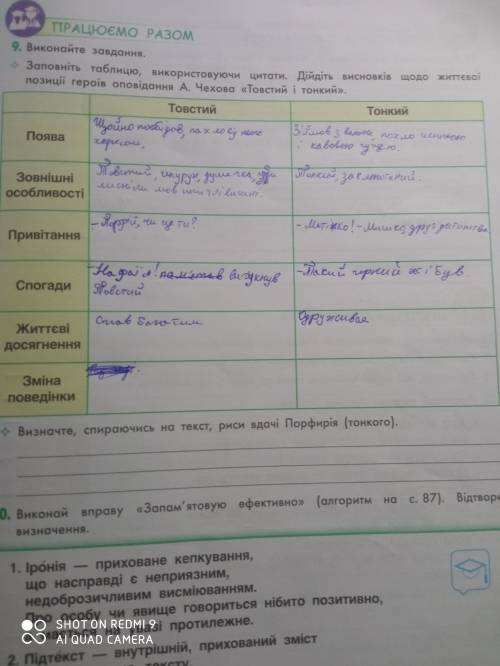 ПРАЦЮЄМО РАЗОМ
9. Виконайте завдання.
Заповніть таблицю, використовуючи цитати. Дійдіть висновків щодо життєвої
позиції героїв оповідання А. Чехова «Товстий і тонкий».
Товстий
Тонкий
Поява
Щойно пообідав, пахло від нього
хересом.
Зійшов з вагона, пахло шинкою
і кавовою гущею.
Зовнішні
особливості
Товстий,
лисніли мов вишні.
Тонкий,
Привітання
- Порфирій, чи це ти?
- Мишко, друг дитинства
Спогади
вигукнув
Товстий
- Такий гарний
був.
Життєві
досягнення
Став багатим
Одружився
Зміна
поведінки
Визначте, спираючись на текст, риси вдачі Порфирія (тонкого).
0. Виконай вправу «Запам'ятовую ефективно» (алгоритм на с. 87). Відтвори
визначення.
1. Іронія — приховане кепкування,
що насправді є неприязним,
недоброзичливим висміюванням.
Про особу чи явище говориться нібито позитивно,
на увазі протилежне.
2. Підтекст — внутрішній, прихований зміст
тексту.
SHOT ON REDMI 9
AI QUAD CAMERA